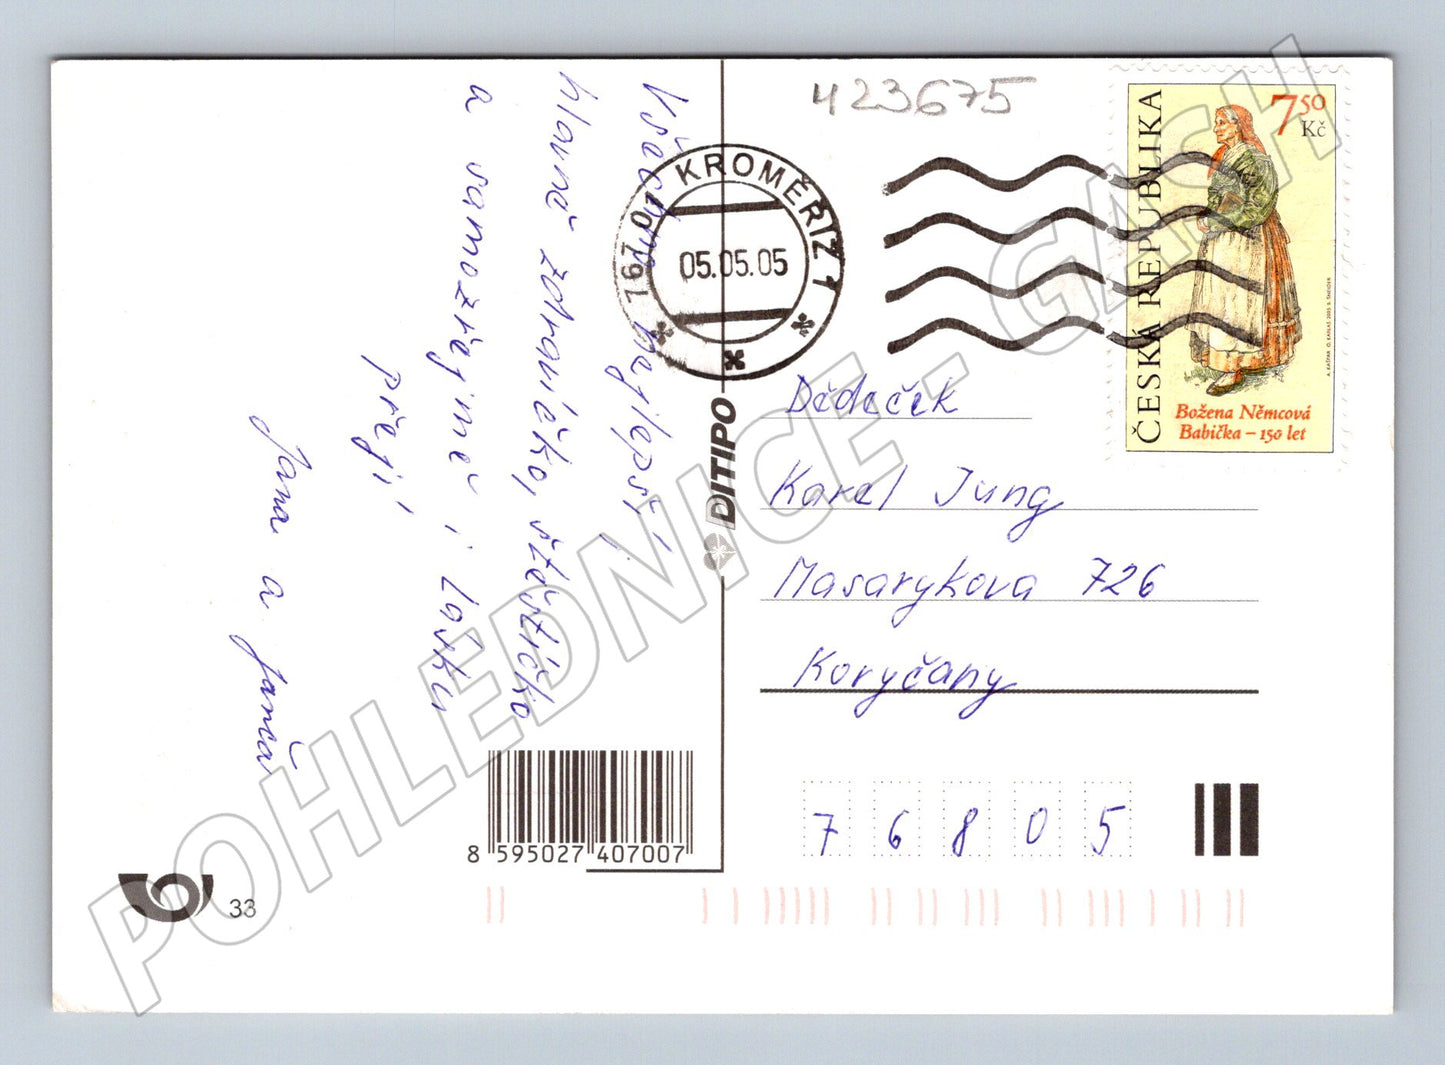 423675
7 50
Kč
ČESKÁ REPUBLIKA
A. KAŠPAR O. KARLAS 2005 B. ŠNEIDER
Božena Němcová
Babička – 150 let
767 01 KROMĚŘÍŽ 1
05.05.05
Všechno nejlepší,
hlavně zdravíčko, štěstíčko
a samozřejmě i lásku
přejí
Jana a Janča
DITIPO
Dědeček
Karel Jung
Masarykova 726
Koryčany
76805
8 595027 407007
33
POHLEDNICE - GASH